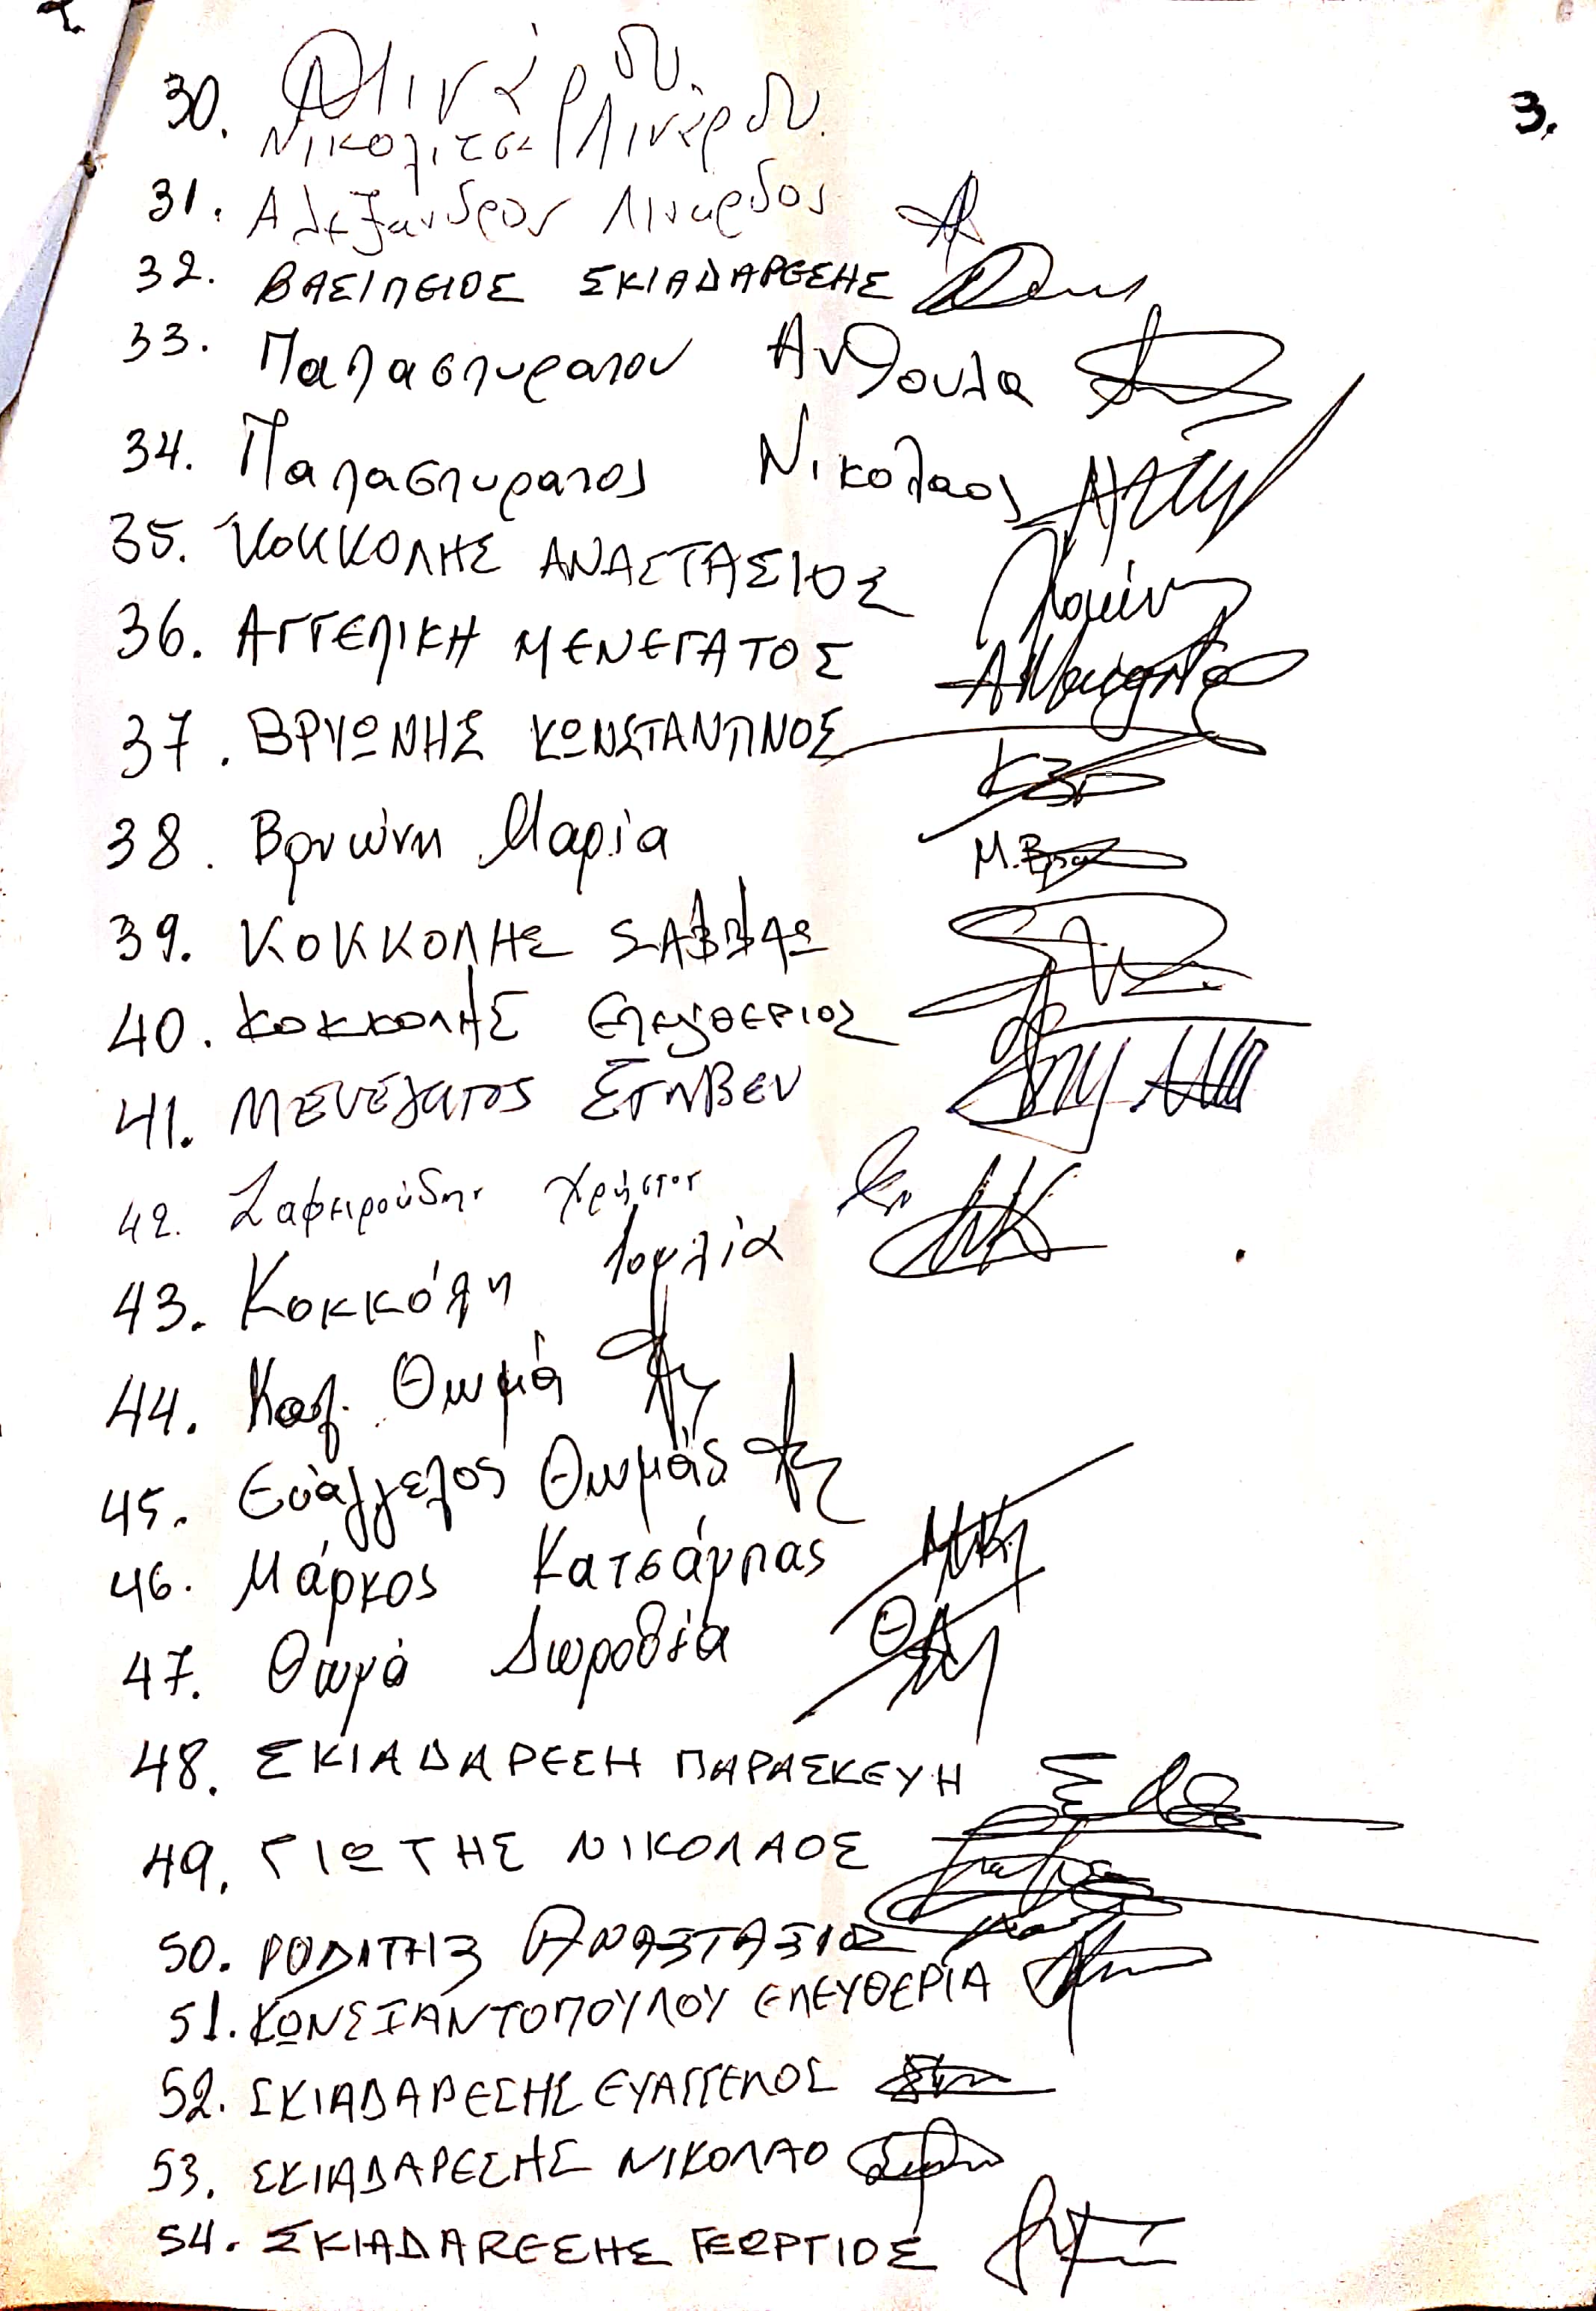 3.
30. Λινάρδου
Νικολίτσα Λινάρδου
31. Αλεξανδρος Λιναρδος
32. ΒΑΣΙΛΕΙΟΣ ΣΚΙΑΔΑΡΕΣΗΣ
33. Παπασπυρατου Ανθουλα
34. Παπασπυρατος Νικολαος
35. ΚΟΚΚΟΛΗΣ ΑΝΑΣΤΑΣΙΟΣ
36. ΑΓΓΕΛΙΚΗ ΜΕΝΕΓΑΤΟΣ
37. ΒΡΥΩΝΗΣ ΚΩΝΣΤΑΝΤΙΝΟΣ
38. Βρυώνη Μαρία
Μ. Βρυ
39. ΚΟΚΚΟΛΗΣ
40. ΚΟΚΚΟΛΗΣ ΕΛΕΥΘΕΡΙΟΣ
41. ΜΕΝΕΓΑΤΟΣ ΣΤΗΒΕΝ
42. Ζαφειρούδης Χρήστος
43. Κοκκόλη Ιουλία
44. Κατ. Θωμά
45. Ευάγγελος Θωμάς
46. Μάρκος Κατσάμπας
47. Θωμά Δωροθέα
48. ΣΚΙΑΔΑΡΕΣΗ ΠΑΡΑΣΚΕΥΗ
49. ΓΙΩΤΗΣ ΝΙΚΟΛΑΟΣ
50. ΡΟΔΙΤΗΣ ΑΝΑΣΤΑΣΙΟΣ
51. ΚΩΝΣΤΑΝΤΟΠΟΥΛΟΥ ΕΛΕΥΘΕΡΙΑ
52. ΣΚΙΑΔΑΡΕΣΗΣ ΕΥΑΓΓΕΛΟΣ
53. ΣΚΙΑΔΑΡΕΣΗΣ ΝΙΚΟΛΑΟ
54. ΣΚΙΑΔΑRΕΣΗΣ ΓΕΩΡΓΙΟΣ